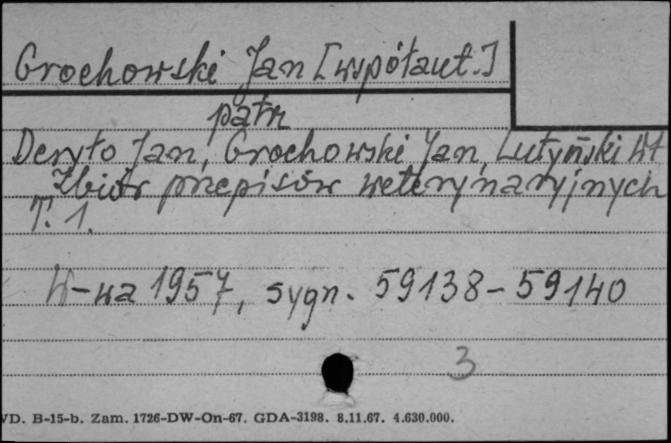 Grochowski Jan [współaut.]
patrz
Deryło Jan, Grochowski Jan, Lutyński Wł
Zbiór przepisów weterynaryjnych
T. 1.
W-wa 1957, sygn. 59138-59140
3
VD. B-15-b. Zam. 1726-DW-On-67. GDA-3198. 8.11.67. 4.630.000.